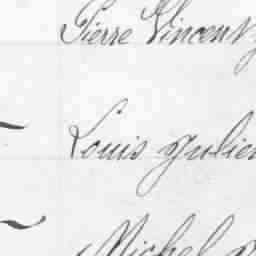 Pierre Vincent
Louis Julien
Michel